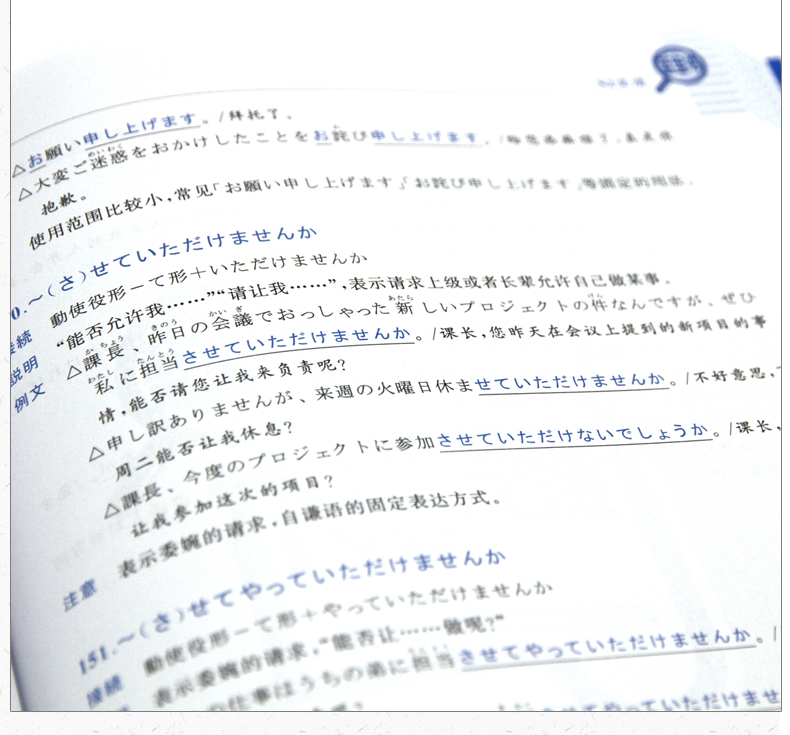 △お願い申し上げます。/拜托了。
△大変ご迷惑をおかけしたことをお詫び申し上げます。/
抱歉。
使用范围比较小,常见「お願い申し上げます」「お詫び申し上げます」等固定的用法。
0.~(さ)せていただけませんか
接続 動使役形ーて形+いただけませんか
説明 “能否允许我……”“请让我……”,表示请求上级或者长辈允许自己做某事。
例文 △課長、昨日の会議でおっしゃった新しいプロジェクトの件なんですが、ぜひ
私に担当させていただけませんか。/课长,您昨天在会议上提到的新项目的事
情,能否请您让我来负责呢?
△申し訳ありませんが、来週の火曜日休ませていただけませんか。/不好意思,
周二能否让我休息?
△課長、今度のプロジェクトに参加させていただけないでしょうか。/课长,
让我参加这次的项目?
注意 表示委婉的请求,自谦语的固定表达方式。
151.~(さ)せてやっていただけませんか
接続 動使役形ーて形+やっていただけませんか
表示委婉的请求,“能否让……做呢?”
の仕事はうちの弟に担当させてやっていただけませんか。/
せてやっていただけませ